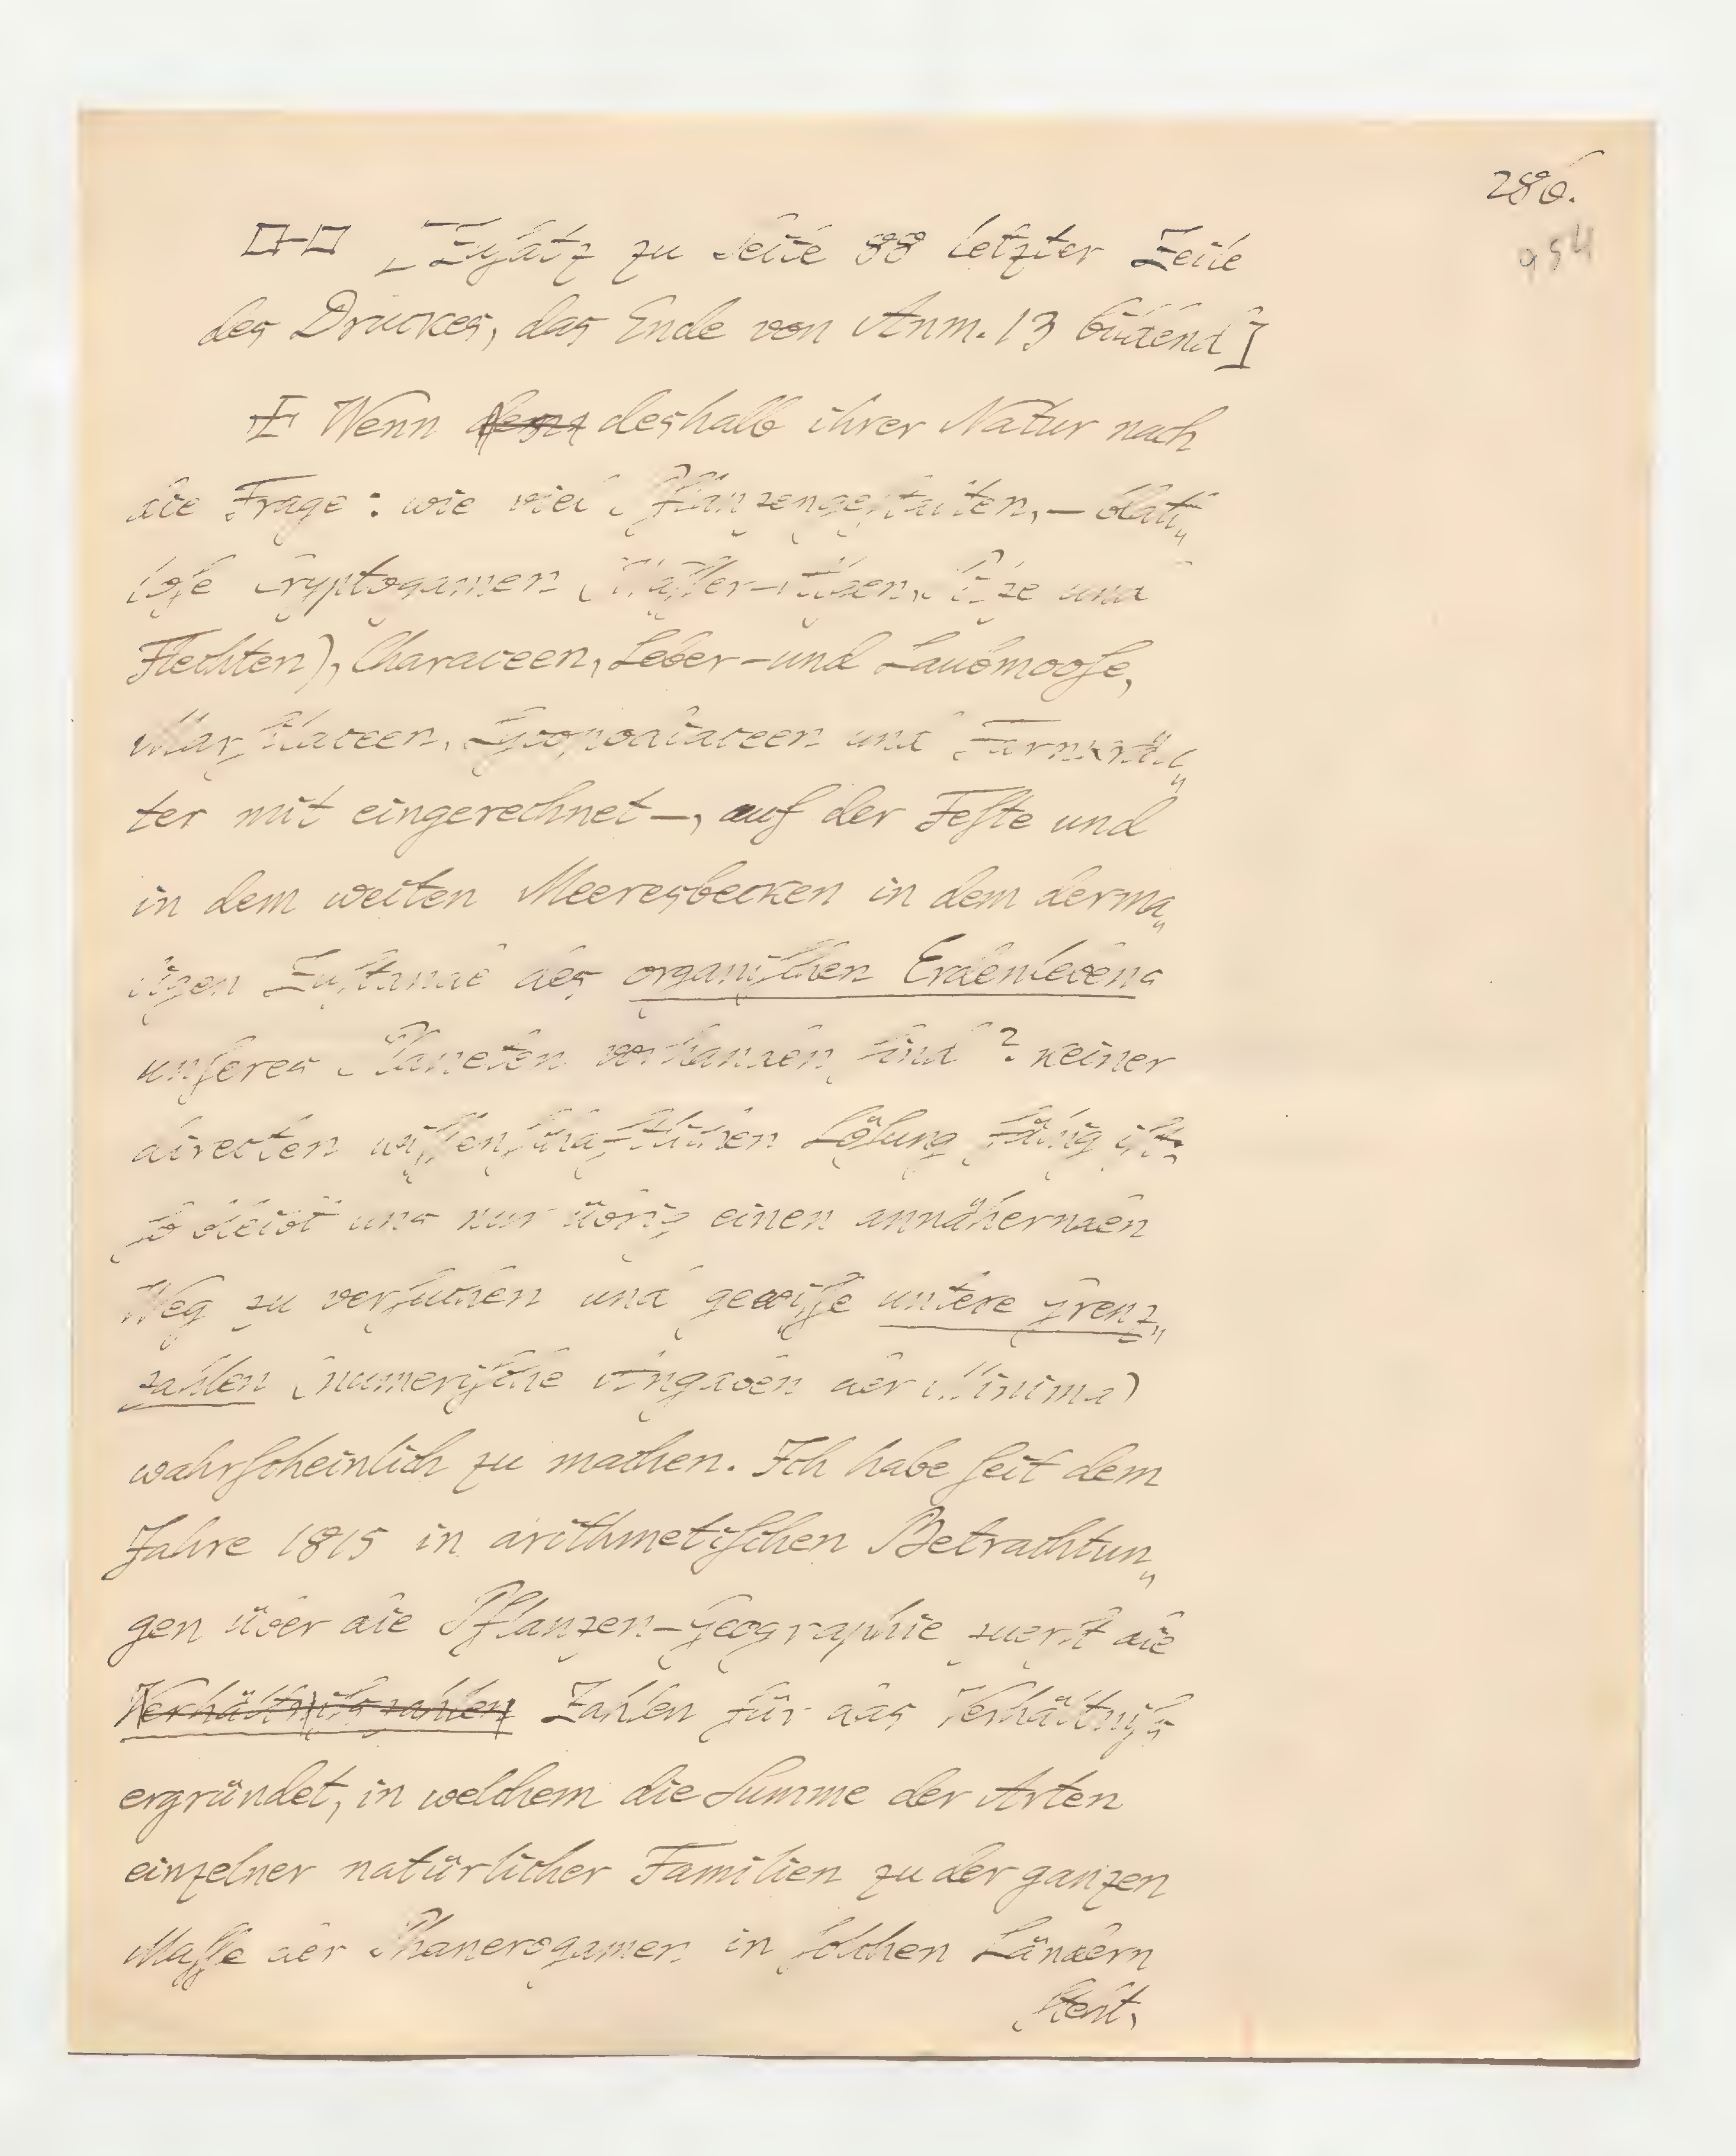 286.
954
[Zusatz zu Seite 88 letzter Zeile
des Druckes, das Ende von Anm. 13 bildend]
Wenn denn deshalb ihrer Natur nach
die Frage: wie viel Pflanzengestalten, – blatt„
lose Cryptogamen (Wasser-Algen, Pilze und
Flechten), Characeen, Leber- und Laubmoose,
Marsilaceen, Lycopodiaceen und Farnkräu„
ter mit eingerechnet –, auf der Feste und
in dem weiten Meeresbecken in dem derma„
ligen Zustande des organischen Erdenlebens
unseres Planeten vorhanden sind? keiner
directen wissenschaftlichen Lösung fähig ist:
so bleibt uns nur übrig einen annähernden
Weg zu versuchen und gewisse untere Grenz„
zahlen (numerische Angaben der Minima)
wahrscheinlich zu machen. Ich habe seit dem
Jahre 1815 in arithmetischen Betrachtun„
gen über die Pflanzen-Geographie zuerst die
Verhältnißzahlen Zahlen für das Verhältniß
ergründet, in welchem die Summe der Arten
einzelner natürlicher Familien zu der ganzen
Masse der Phanerogamen in solchen Ländern
steht,